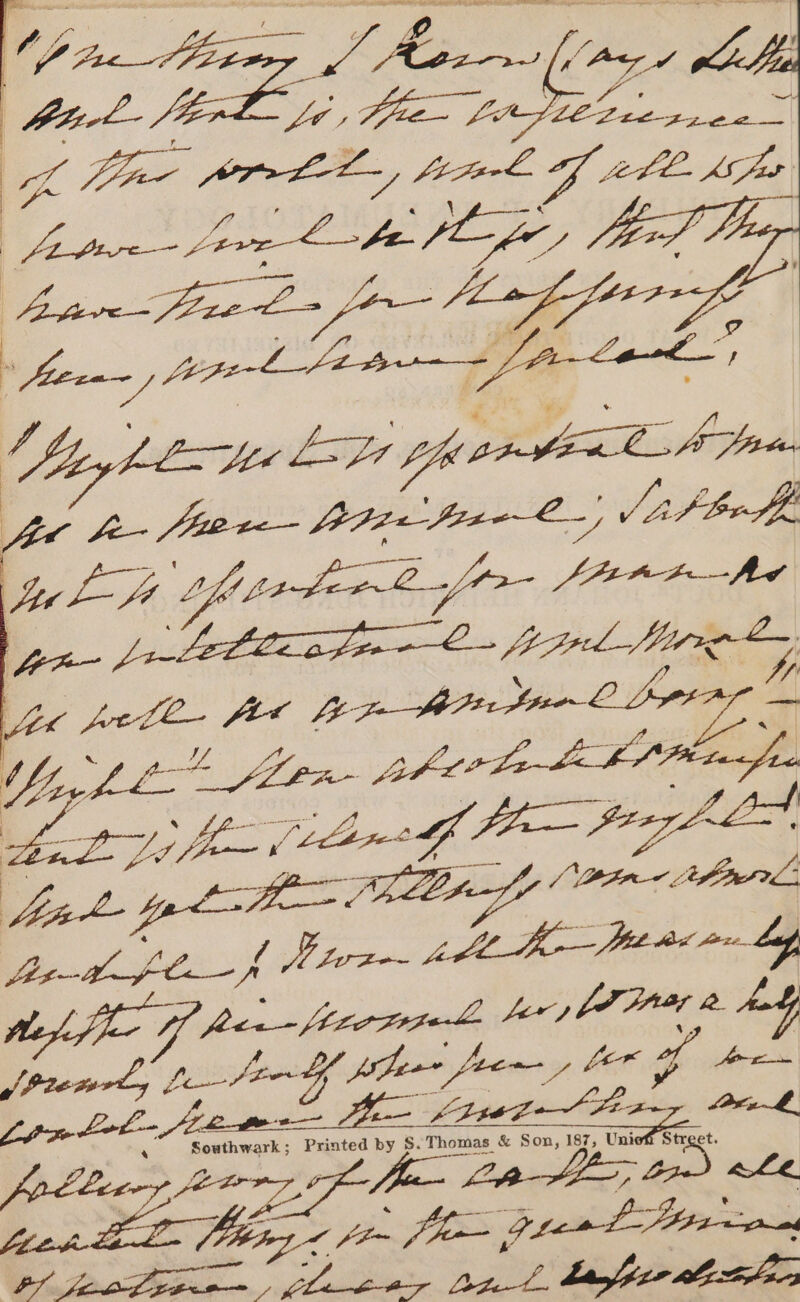 "One thing I know (says Luther
and that is, the experience
of this world, and of all who
have lived in it is, that they
have tried for happiness
here, and have failed".
"Night rest is essential to man
as a mere animal; Sabbath
rest is essential for man as
an intellectual and moral
as well as an animal being" —
"Night" How absolute & omnipo
tent is the silence of the night!
And yet the stillness seems almost
audible! From all the measureless
depths of air around us, comes a half
sound, a half whisper, as if we
could hear the crumbling and
Southwark; Printed by S. Thomas & Son, 187, Union Street.
falling away of the earth, and all
created things in the great miracle
of nature, decay and reproduction